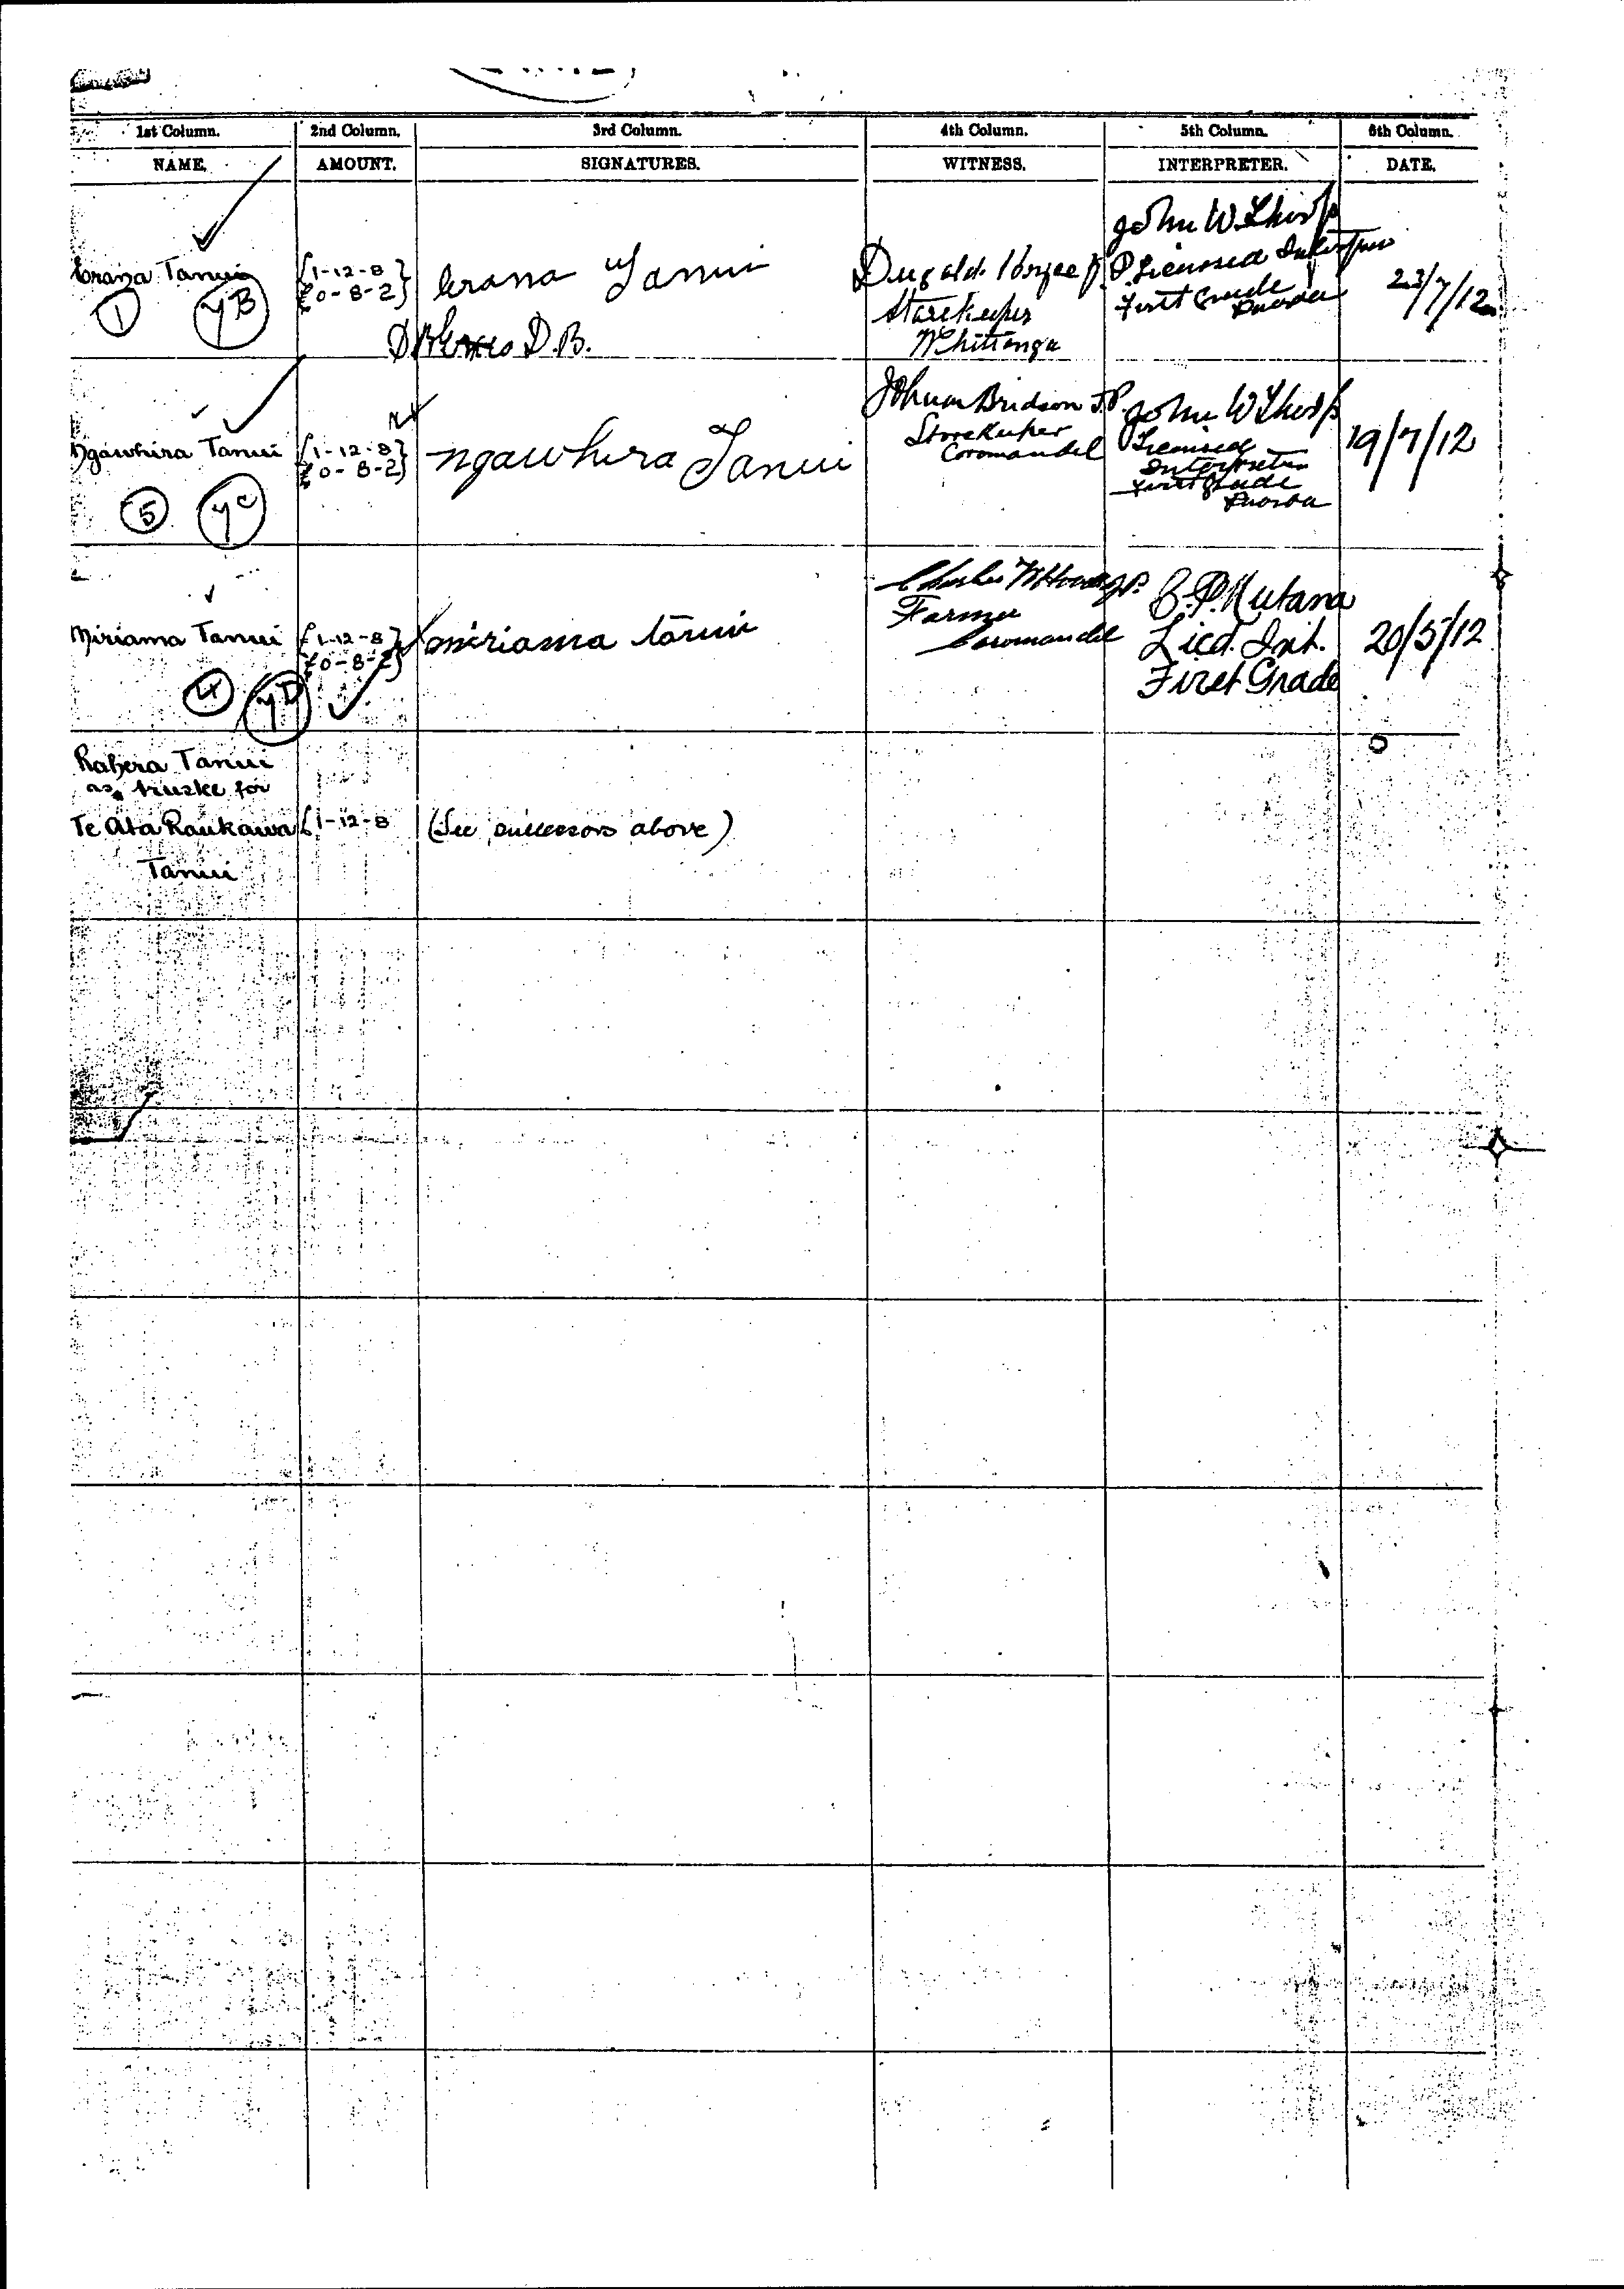 1st Column. 2nd Column. 3rd Column. 4th Column. 5th Column. 6th Column.
NAME. AMOUNT. SIGNATURES. WITNESS. INTERPRETER. DATE.
John W Thorp
Erana Tanui {1-12-8} Erana Tanui Dugald J.P. Licensed Interpreter 23/7/12
£0-8-2} Storekeeper First Grade
1 YB D.B. Whittonga Paeroa
John Bridson J.P. John W Thorp
Ngawhira Tanui {1-12-8} Ngawhira Tanui Storekeeper Licensed 19/7/12
£0-8-2} Coromandel Interpreter
5 YC First Grade
Paeroa
J.P. Mutana
Farmer
Miriama Tanui £1-12-8} miriama tānui Coromandel Licd. Int. 20/5/12
£0-8-2} First Grade
4 YD
Rahera Tanui
as trustee for
Te Ata Raukawa £1-12-8 (See successors above)
Tanui